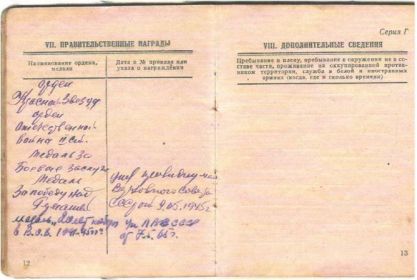 Серия Г
VII. ПРАВИТЕЛЬСТВЕННЫЕ НАГРАДЫ
Наименование ордена, медали
Дата и № приказа или указа о награждении
орден
Красной Звезды
орден
Отечественной
война II ст.
Медаль За
Боевые заслуги
Медаль
За победу над
Верховного Совета
9.05.1945г
медаль "20 лет
в В.О.В. 1941-45гг"
СССР
12
VIII. ДОПОЛНИТЕЛЬНЫЕ СВЕДЕНИЯ
Пребывание в плену, пребывание в окружении не в со-
ставе части, проживание на оккупированной против-
ником территории, служба в белой и иностранных
армиях (когда, где и сколько времени)
13